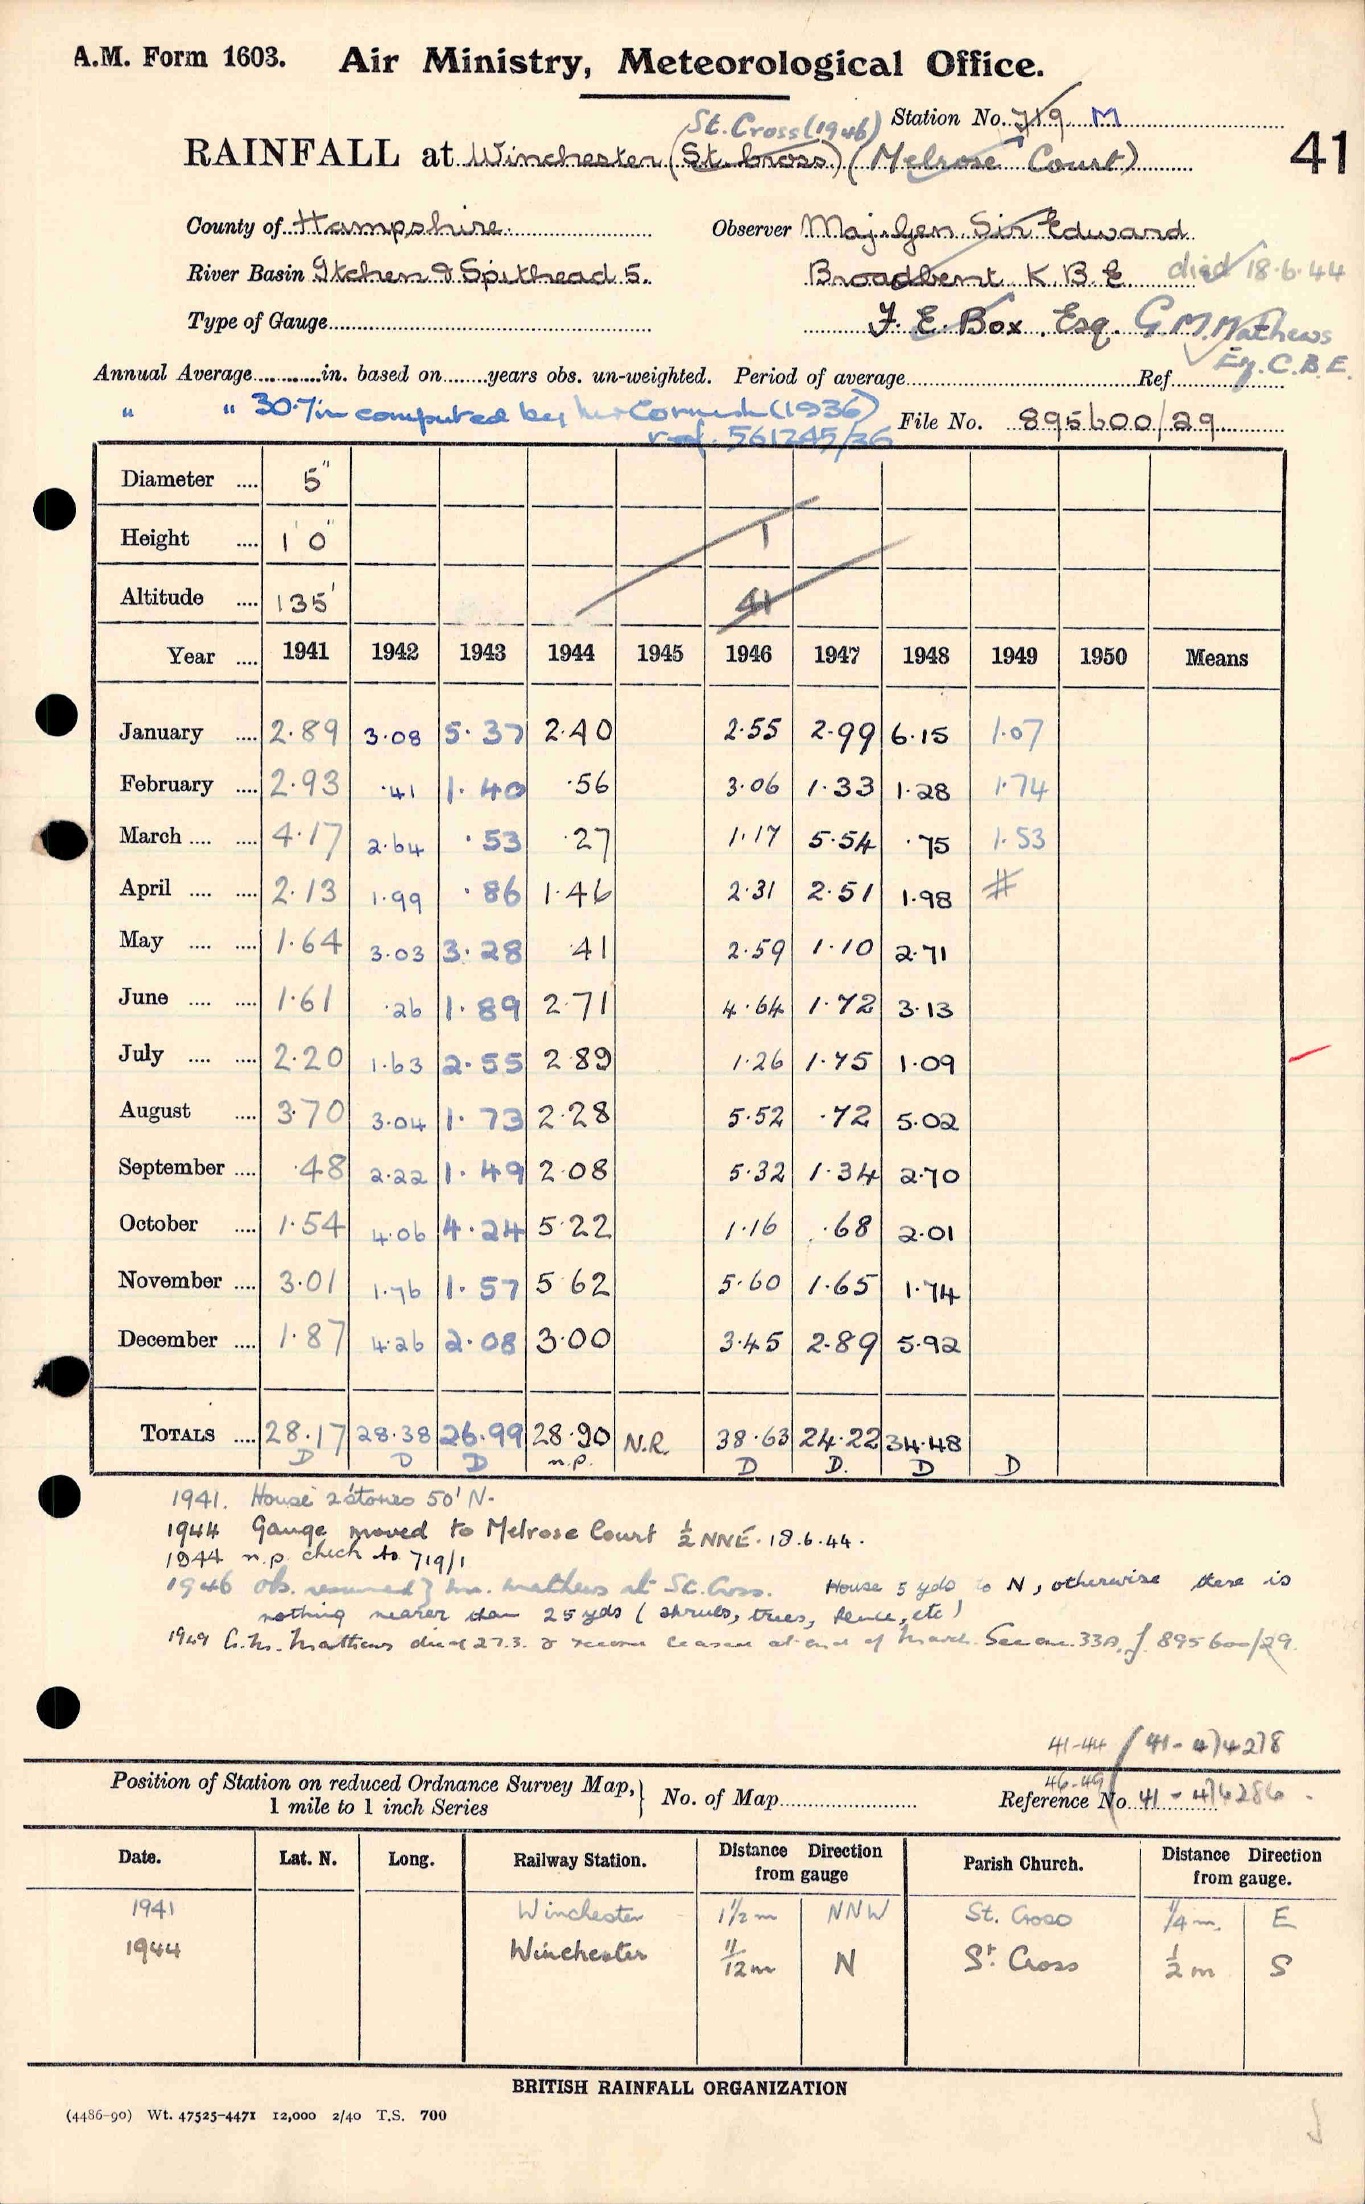 A.M. Form 1603. Air Ministry, Meteorological Office.
Station No. 719 M
St. Cross (1946)
RAINFALL at Winchester (St. Cross) (Melrose Court)
41
County of Hampshire. Observer Maj. Gen Sir Edward
River Basin Itchen & Spithead 5. Broadbent K.B.E. died 18.6.44
Type of Gauge F. E. Box, Esq. G M. Mathews
Esq. C.B.E.
Annual Average in. based on years obs. un-weighted. Period of average Ref
" " 30.7 in computed by Cornish (1936) File No. 895600/29
ref. 561245/36
Diameter 5"
Height 1' 0" 1
Altitude 135' 41
Year 1941 1942 1943 1944 1945 1946 1947 1948 1949 1950 Means
January 2.89 3.08 5.37 2.40 2.55 2.99 6.15 1.07
February 2.93 .41 1.40 .56 3.06 1.33 1.28 1.74
March 4.17 2.64 .53 .27 1.17 5.54 .75 1.53
April 2.13 1.99 .86 1.46 2.31 2.51 1.98 #
May 1.64 3.03 3.28 .41 2.59 1.10 2.71
June 1.61 .26 1.89 2.71 4.64 1.72 3.13
July 2.20 1.63 2.55 2.89 1.26 1.75 1.09
August 3.70 3.04 1.73 2.28 5.52 .72 5.02
September .48 2.22 1.49 2.08 5.32 1.34 2.70
October 1.54 4.06 4.24 5.22 1.16 .68 2.01
November 3.01 1.76 1.57 5.62 5.60 1.65 1.74
December 1.87 4.26 2.08 3.00 3.45 2.89 5.92
TOTALS 28.17 28.38 26.99 28.90 N.R. 38.63 24.22 34.48
D D D n.p. D D. D D
1941. House 2 stories 50' N.
1944 Gauge moved to Melrose Court ½ NNE. 18.6.44.
1944 n.p. check to 719/1
1946 ob. resumed } Mr. Mathews at St. Cross. House 5 yds to N, otherwise there is
nothing nearer than 25 yds (shrubs, trees, fence, etc)
1949 G.M. Matthews died 27.3. & record ceased at end of March. See 33A, f. 895600/29.
41-44 / 41-4/4278
Position of Station on reduced Ordnance Survey Map, } No. of Map 46-49 Reference No 41-4/4286.
1 mile to 1 inch Series
Date. Lat. N. Long. Railway Station. Distance Direction from gauge Parish Church. Distance Direction from gauge.
1941 Winchester 1½ m NNW St. Cross ¼ m. E
1944 Winchester 11/12 m N St. Cross ½ m S
BRITISH RAINFALL ORGANIZATION
(4486-90) Wt. 47525-4471 12,000 2/40 T.S. 700